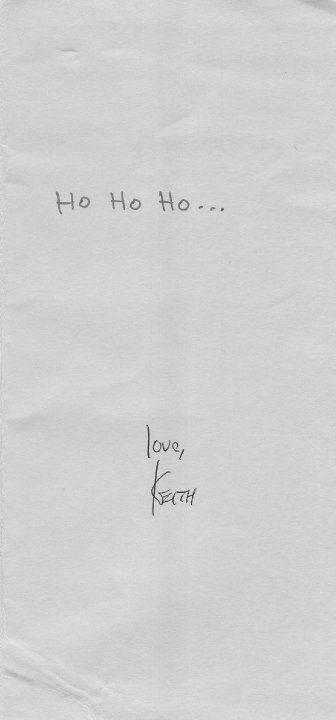 Ho Ho Ho...
love,
KEITH